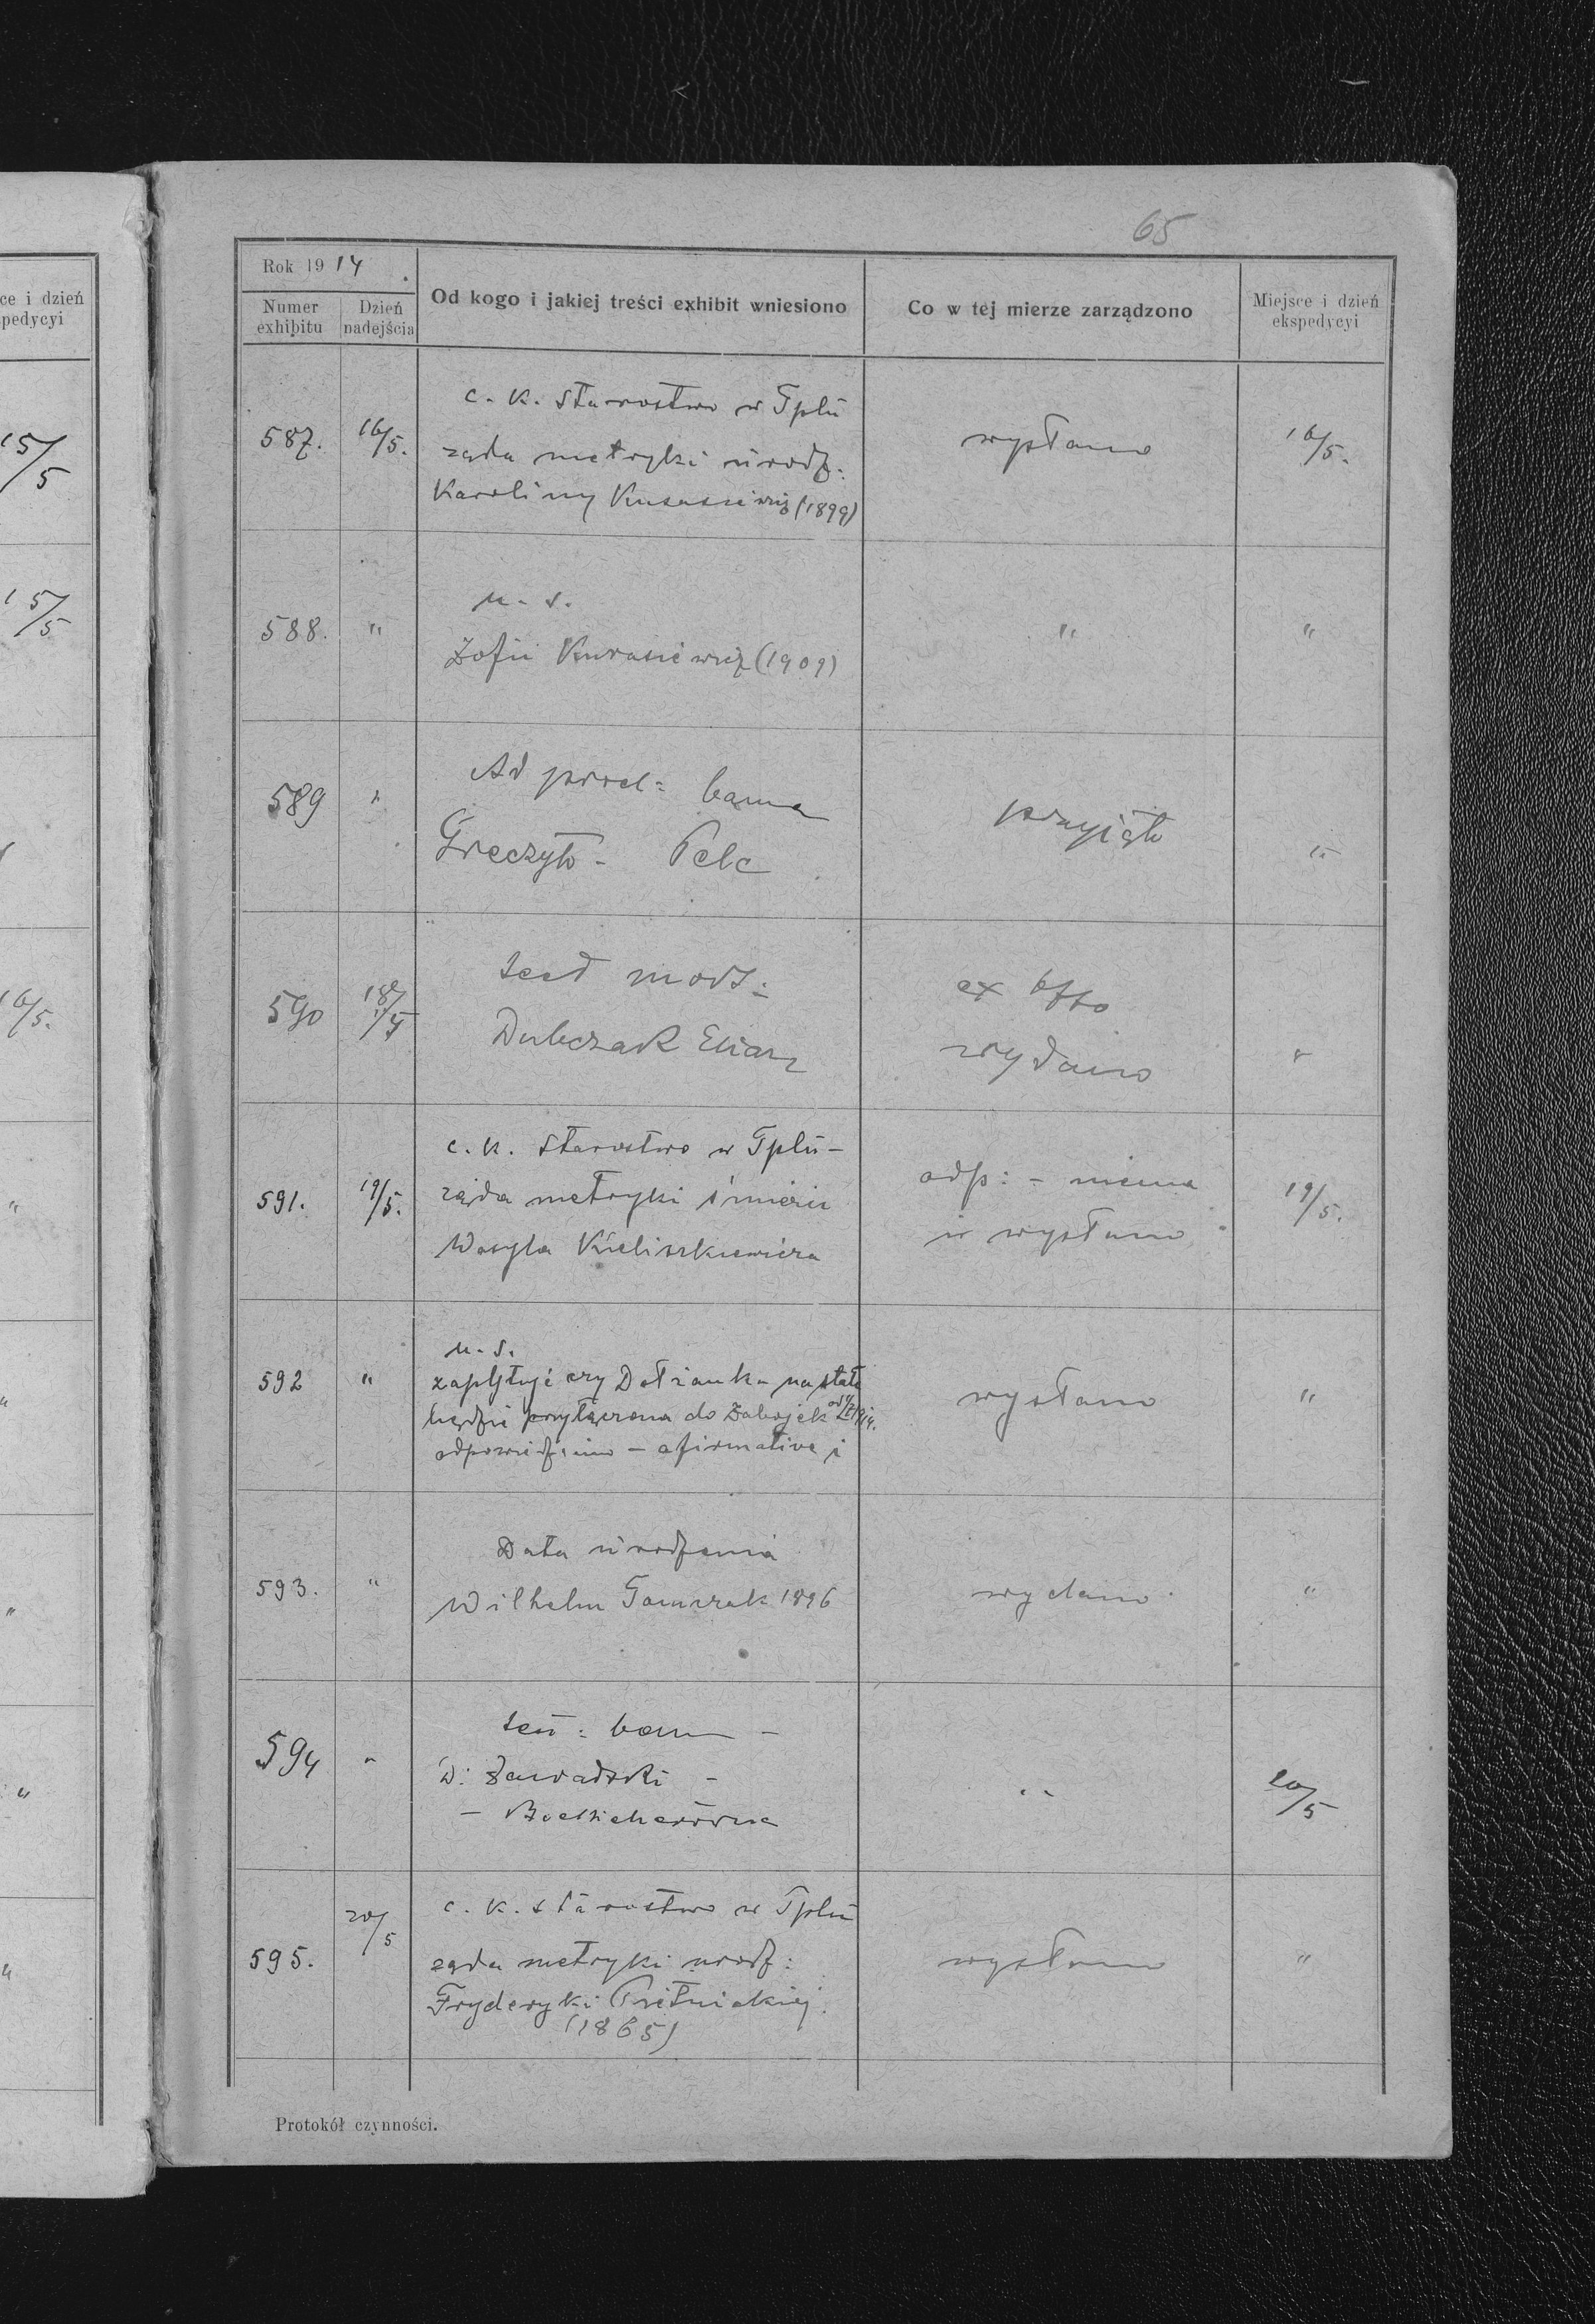 ce i dzień
pedycyi
15/5
15/5
16/5.
"
"
"
"
"
65
Rok 1914.
Numer exhibitu
Dzień nadejścia
Od kogo i jakiej treści exhibit wniesiono
Co w tej mierze zarządzono
Miejsce i dzień ekspedycyi
c. k. starostwo w Tplu
587. 16/5. żąda metryki urodz: wysłano 16/5.
Karoliny (1899)
u. s.
588. " Zofii Kurasiewicz (1909) " "
Ad prot: banna
589 " Greczyło - Pelc przyjęto "
test mort: ex offo
590 18/5 Dubczak Eliasz wydano "
c. k. starostwo w Tplu -
591. 19/5. żąda metryki śmierci odp: - niema 19/5.
Wasyla Kieliszkiewicza i wysłano
u. s.
592 " zapytuje czy Dołżanka na stałe wysłano "
będzie przyłączona do Zabojek
odpowiedziano - afirmative i
Data urodzenia
593. " Wilhelm Tomczak 1896 wydano "
test: bann -
594 " W: Zawadzki - " 20/5
-
c. k. starostwo w Tplu
595. 20/5 żąda metryki urodz: wysłano "
Fryderyki
(1865)
Protokół czynności.